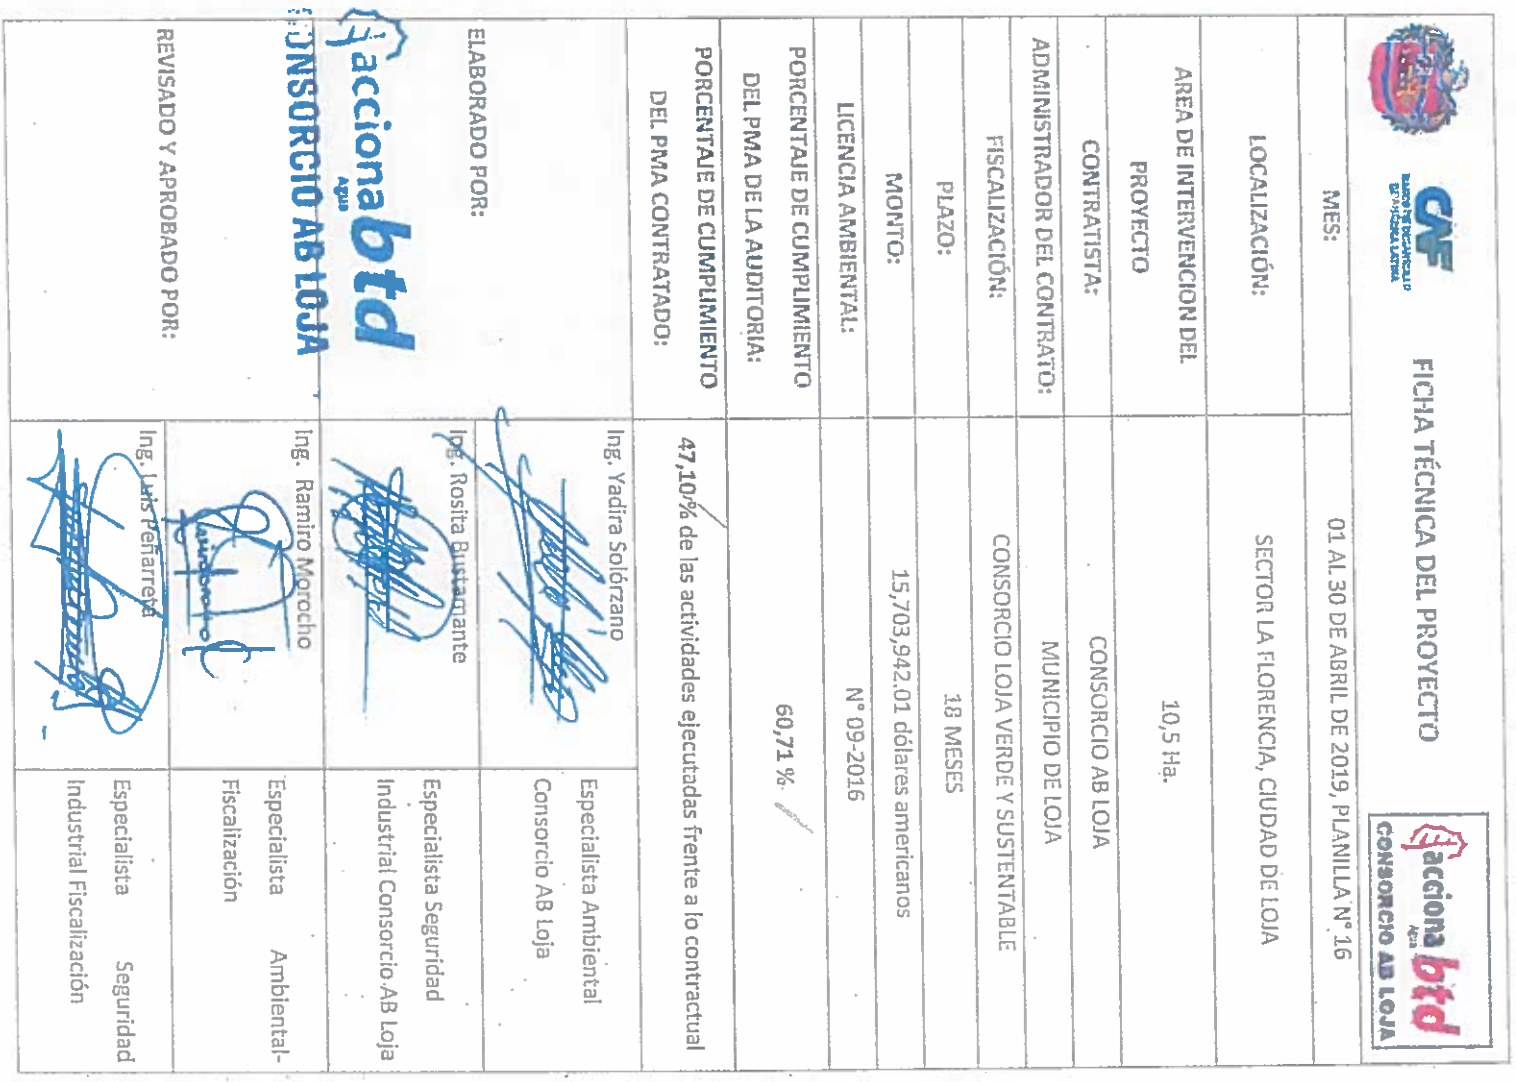 CAF
BANCO DE DESARROLLO
DE AMÉRICA LATINA
FICHA TÉCNICA DEL PROYECTO
acciona btd
Agua
CONSORCIO AB LOJA
MES:
01 AL 30 DE ABRIL DE 2019, PLANILLA N° 16
LOCALIZACIÓN:
SECTOR LA FLORENCIA, CIUDAD DE LOJA
AREA DE INTERVENCION DEL
PROYECTO
10,5 Ha.
CONTRATISTA:
CONSORCIO AB LOJA
ADMINISTRADOR DEL CONTRATO:
MUNICIPIO DE LOJA
FISCALIZACIÓN:
CONSORCIO LOJA VERDE Y SUSTENTABLE
PLAZO:
18 MESES
MONTO:
15,703,942.01 dólares americanos
LICENCIA AMBIENTAL:
N° 09-2016
PORCENTAJE DE CUMPLIMIENTO
DEL PMA DE LA AUDITORIA:
60,71 %
PORCENTAJE DE CUMPLIMIENTO
DEL PMA CONTRATADO:
47,10% de las actividades ejecutadas frente a lo contractual
ELABORADO POR:
Ing. Yadira Solórzano
Especialista Ambiental
Consorcio AB Loja
Ing. Rosita Bustamante
Especialista Seguridad
Industrial Consorcio AB Loja
acciona btd
Agua
CONSORCIO AB LOJA
REVISADO Y APROBADO POR:
Ing. Ramiro Morocho
Especialista Ambiental-
Fiscalización
Ing. Luis Peñarreta
Especialista Seguridad
Industrial Fiscalización